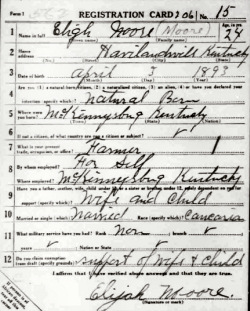 Form 1
REGISTRATION CARD No. 15
1 Name in full Eligh Moore (Moore) Age, in yrs. 24
(Given name) (Family name)
2 Home address Havilandsvill Kentucky
3 Date of birth April 1893
(Month) (Day) (Year)
4 Are you (1) a natural-born citizen, (2) a naturalized citizen, (3) an alien, (4) or have you declared your
intention (specify which)? Natural Born
5 Where were you born? McKinneysburg Kentucky
6 If not a citizen, of what country are you a citizen or subject?
7 What is your present trade, occupation, or office? Farmer
8 By whom employed? For Self
Where employed? McKinneysburg Kentucky
9 Have you a father, mother, wife, child under 12, or a sister or brother under 12, solely dependent on you for
support (specify which)? Wife and Child
10 Married or single (which)? Married Race (specify which)? Caucasian
11 What military service have you had? Rank Non branch
years Nation or State
12 Do you claim exemption from draft (specify grounds)? support of Wife & Child
I affirm that I have verified above answers and that they are true.
Elijah Moore.
(Signature or mark)